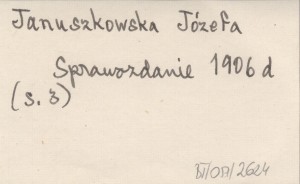 Januszkowska Józefa
Sprawozdanie 1906 d
(s. 3)
IV/OP/2624